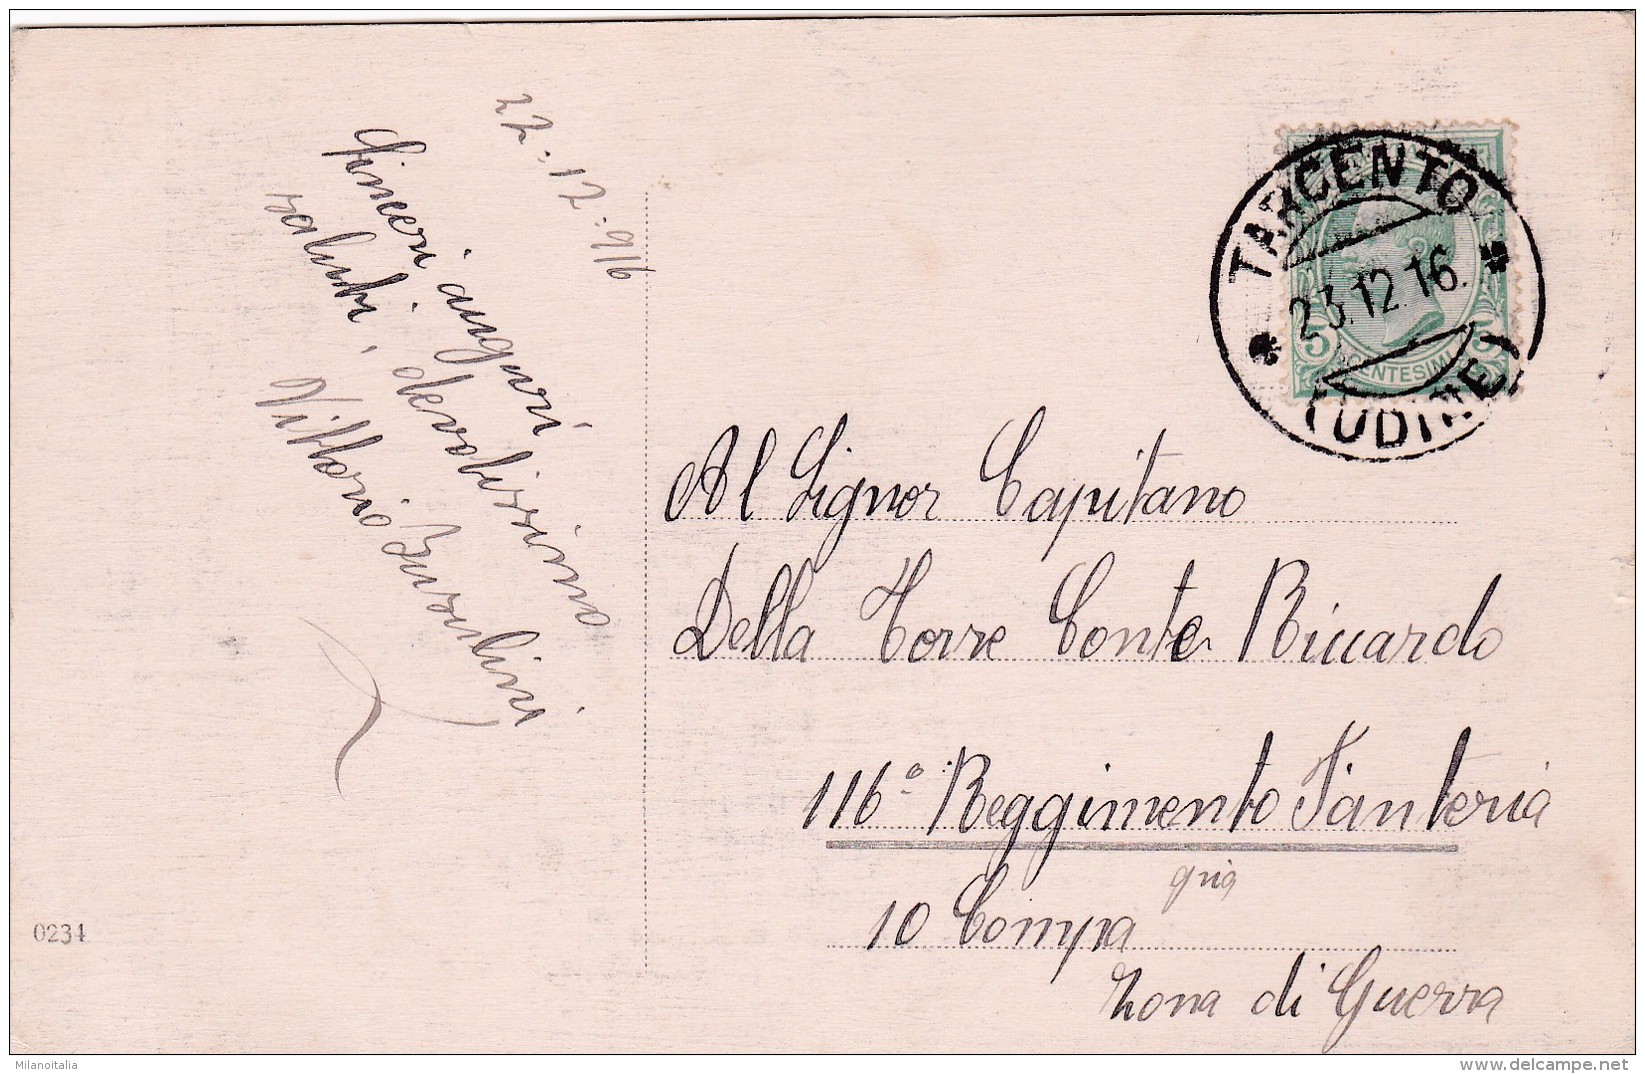 22-12-916
Sinceri auguri
saluti, devotissimo
Vittorio Bursulini
TARCENTO
23.12.16.
(UDINE)
5 5
CENTESIMI
Al Signor Capitano
Della Torre Conte Riccardo
116° Reggimento Fanteria
10 Compa gnia
Zona di Guerra
0234
Milanoitalia
delcampe.net